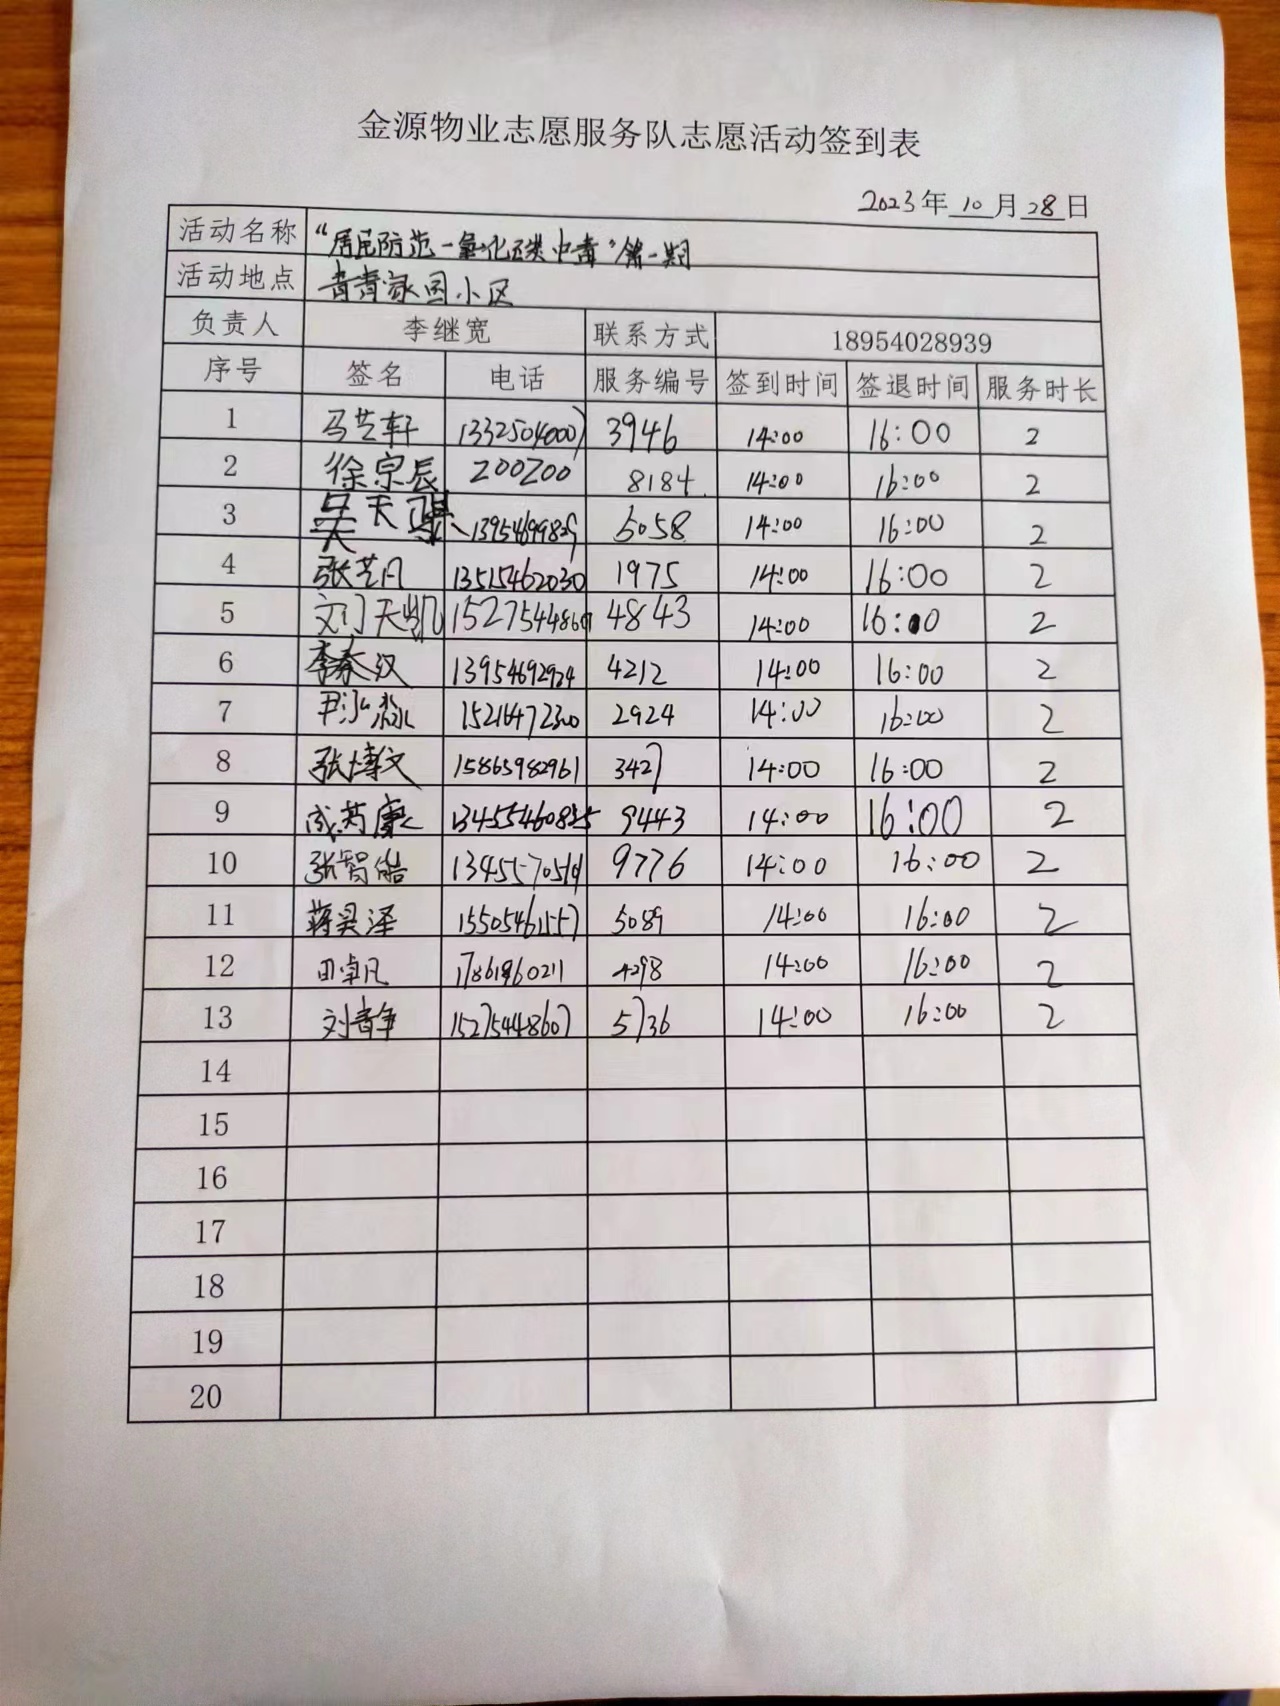 金源物业志愿服务队志愿活动签到表
2023年10月28日
活动名称 “居民防范一氧化碳中毒”第一期
活动地点 青青家园小区
负责人 李继宽 联系方式 18954028939
序号 签名 电话 服务编号 签到时间 签退时间 服务时长
1 马艺轩 13325040007 3946 14:00 16:00 2
2 徐宗辰 200200 8184 14:00 16:00 2
3 吴天骐 5058 14:00 16:00 2
4 张艺凡 13515462030 1975 14:00 16:00 2
5 文门天凯 15275448607 4843 14:00 16:00 2
6 李泰汉 13954692924 4212 14:00 16:00 2
7 尹泓淼 2924 14:00 16:00 2
8 张博文 15865982961 3427 14:00 16:00 2
9 成芮康 13455460835 9443 14:00 16:00 2
10 张智皓 9776 14:00 16:00 2
11 蒋昊泽 15505461557 5089 14:00 16:00 2
12 田卓凡 17861960211 4298 14:00 16:00 2
13 刘静 15275448607 5736 14:00 16:00 2
14
15
16
17
18
19
20